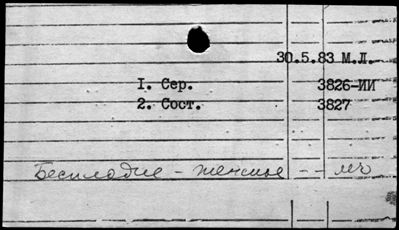 30.5.83 М.Л.
1. Сер. 3826-ИИ
2. Сост. 3827
Бесплодие - женское -